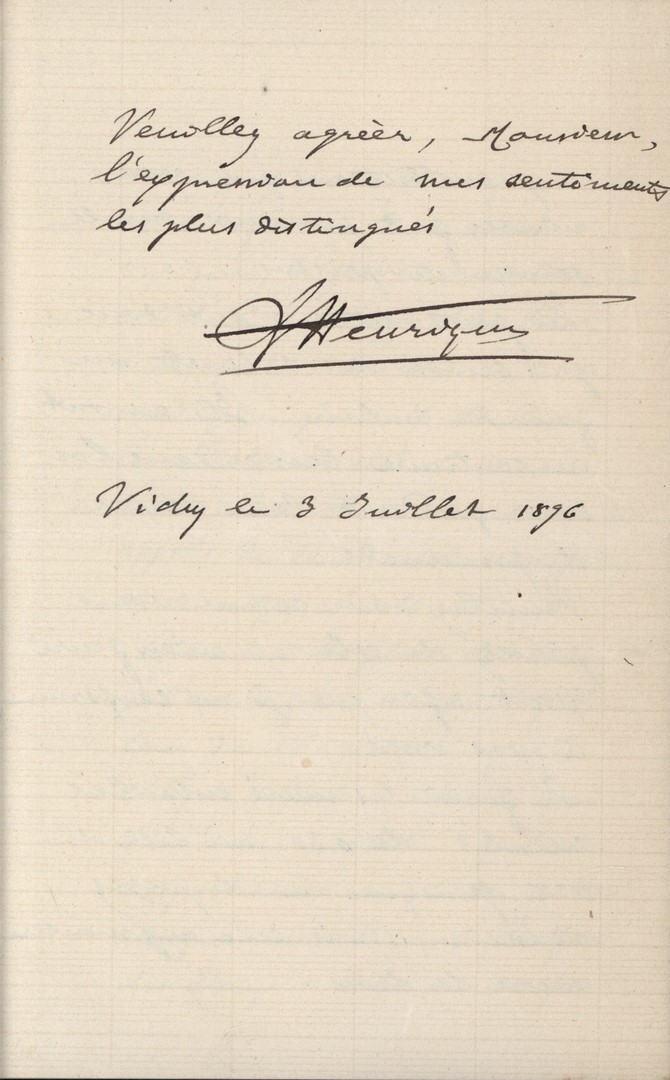 Veuillez agréer, Monsieur,
l'expression de mes sentiments
les plus distingués
Henrique
Vichy le 3 Juillet 1896